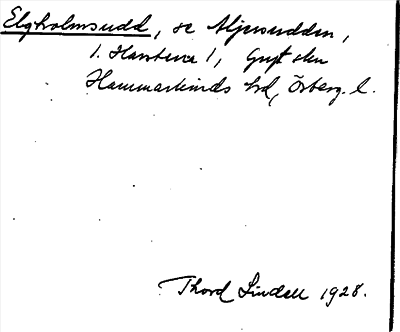 Elgholmsudd, se Mjersudden,
1. Hanstena 1, Gryt skn
Hammarkinds hd, Österg. l.
Thord Lindell 1928.